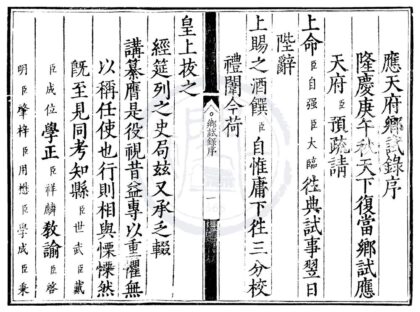 應天府鄉試錄序
隆慶庚午秋天下復當鄉試應
天府臣預疏請
上命臣自强臣大臨往典試事翌日
陛辭
上賜之酒饌臣自惟庸下往三分校
禮闈今荷
鄉試錄序
一
皇上拔之
經筵列之史局兹又承乏輟
講纂膺是役視昔益專以重懼無
以稱任使也行則相與慄慄然
旣至見同考知縣臣世武臣葴
臣成位學正臣祥麟敎諭臣啓
明臣肇梓臣用懋臣學成臣秉